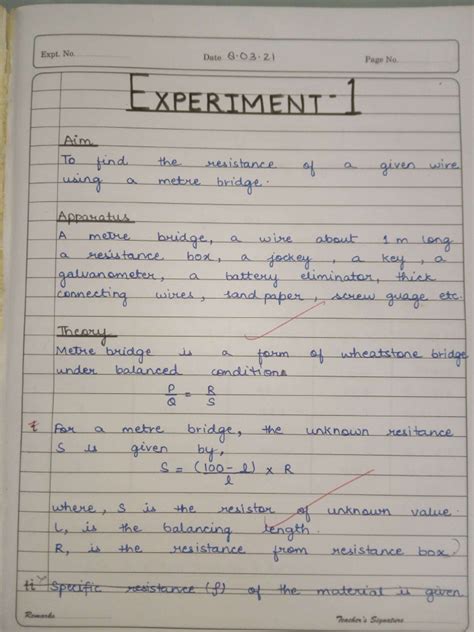 Expt. No.
Date 8.03.21
Page No.
EXPERIMENT-1
Aim
To find the resistance of a given wire
using a metre bridge.
Apparatus
A metre bridge, a wire about 1 m long
a resistance box, a jockey, a key, a
galvanometer, a battery eliminator, thick
connecting wires, sand paper, screw guage etc.
Theory
Metre bridge is a form of wheatstone bridge
under balanced conditions
P/Q = R/S
i For a metre bridge, the unknown resitance
S is given by,
S = (100 - l)/l × R
where, S is the resistor of unknown value.
L, is the balancing length.
R, is the resistance from resistance box)
ii Specific resistance (ρ) of the material is given
Remarks
Teacher's Signature